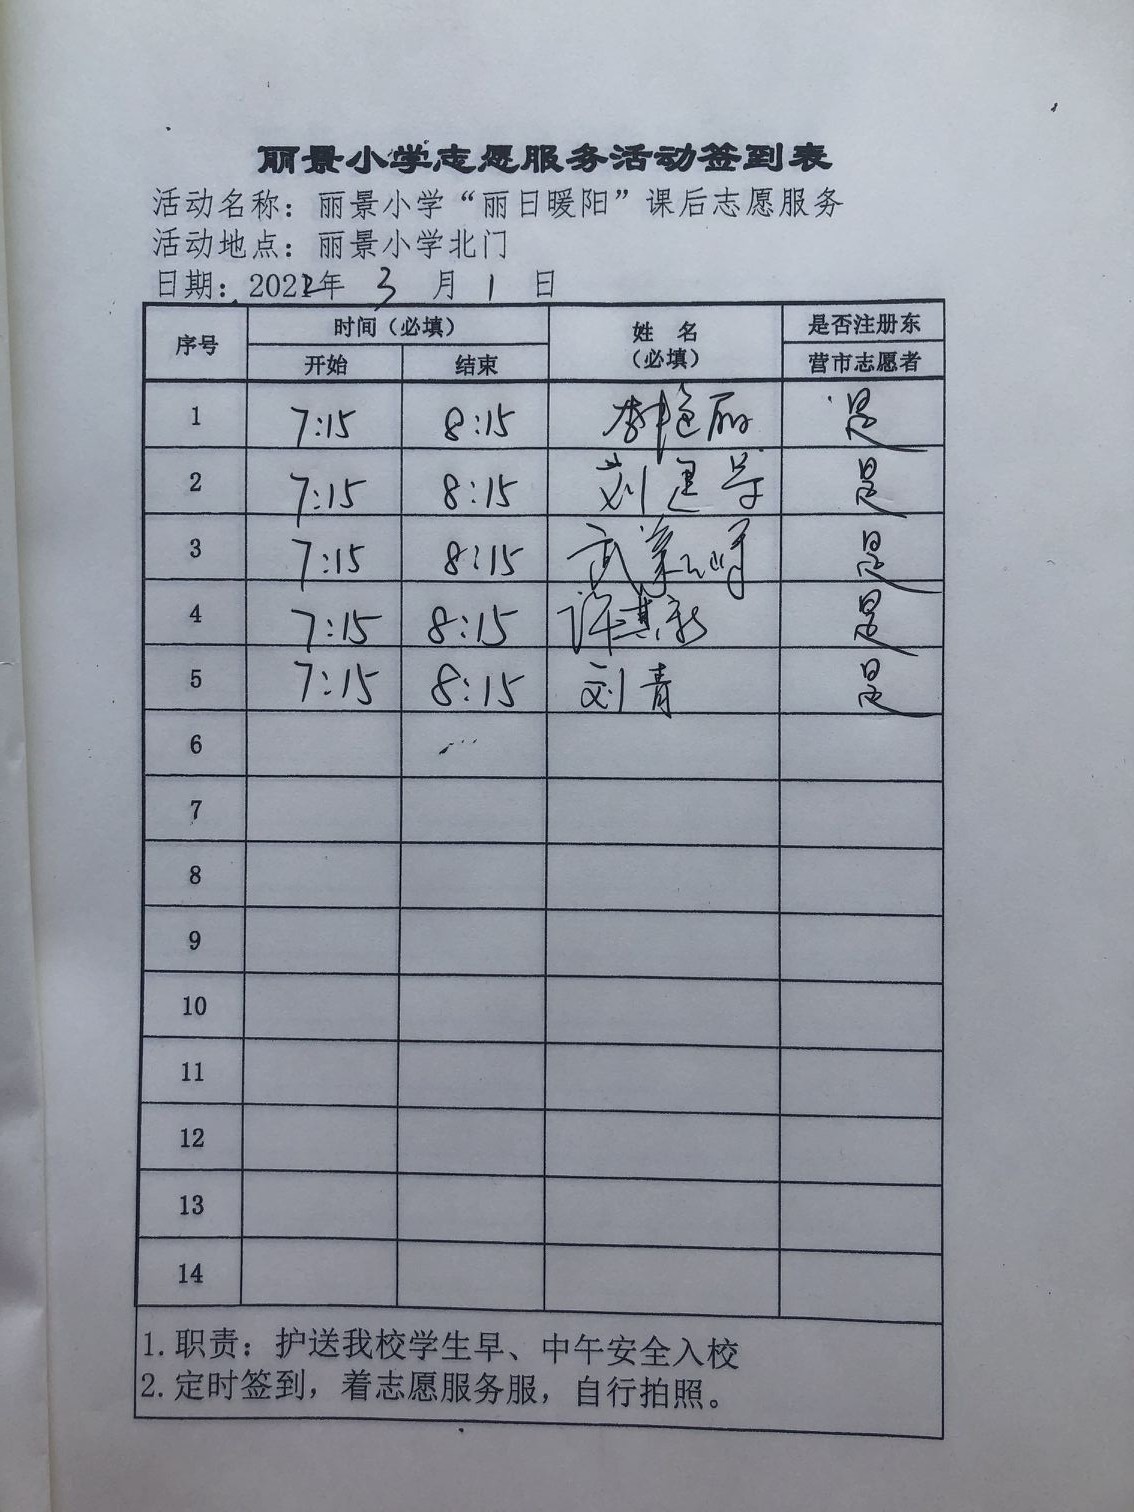 丽景小学志愿服务活动签到表
活动名称：丽景小学“丽日暖阳”课后志愿服务
活动地点：丽景小学北门
日期：2022年 3 月 1 日
序号 时间（必填） 姓 名 是否注册东
开始 结束 （必填） 营市志愿者
1 7:15 8:15 李艳丽 是
2 7:15 8:15 刘建 是
3 7:15 8:15 武 是
4 7:15 8:15 许 是
5 7:15 8:15 刘青 是
6
7
8
9
10
11
12
13
14
1.职责：护送我校学生早、中午安全入校
2.定时签到，着志愿服务服，自行拍照。